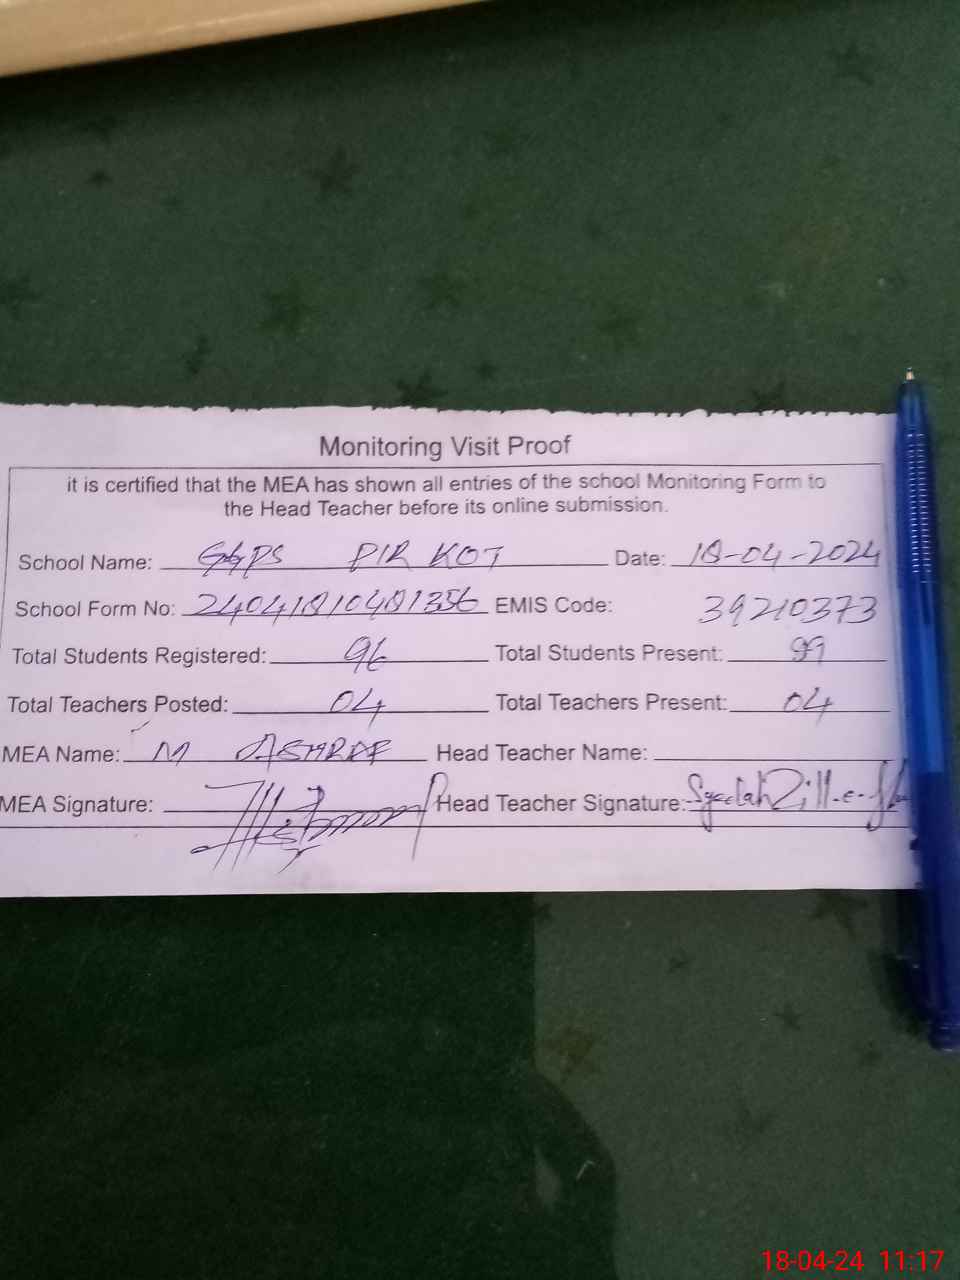 Monitoring Visit Proof
it is certified that the MEA has shown all entries of the school Monitoring Form to
the Head Teacher before its online submission.
School Name: GGPS PIR KOT Date: 18-04-2024
School Form No: 24041810481356 EMIS Code: 39210373
Total Students Registered: 96 Total Students Present:
Total Teachers Posted: 04 Total Teachers Present: 04
MEA Name: M ASHRAF Head Teacher Name:
MEA Signature: Head Teacher Signature: Syedah Zill-e-
18-04-24 11:17